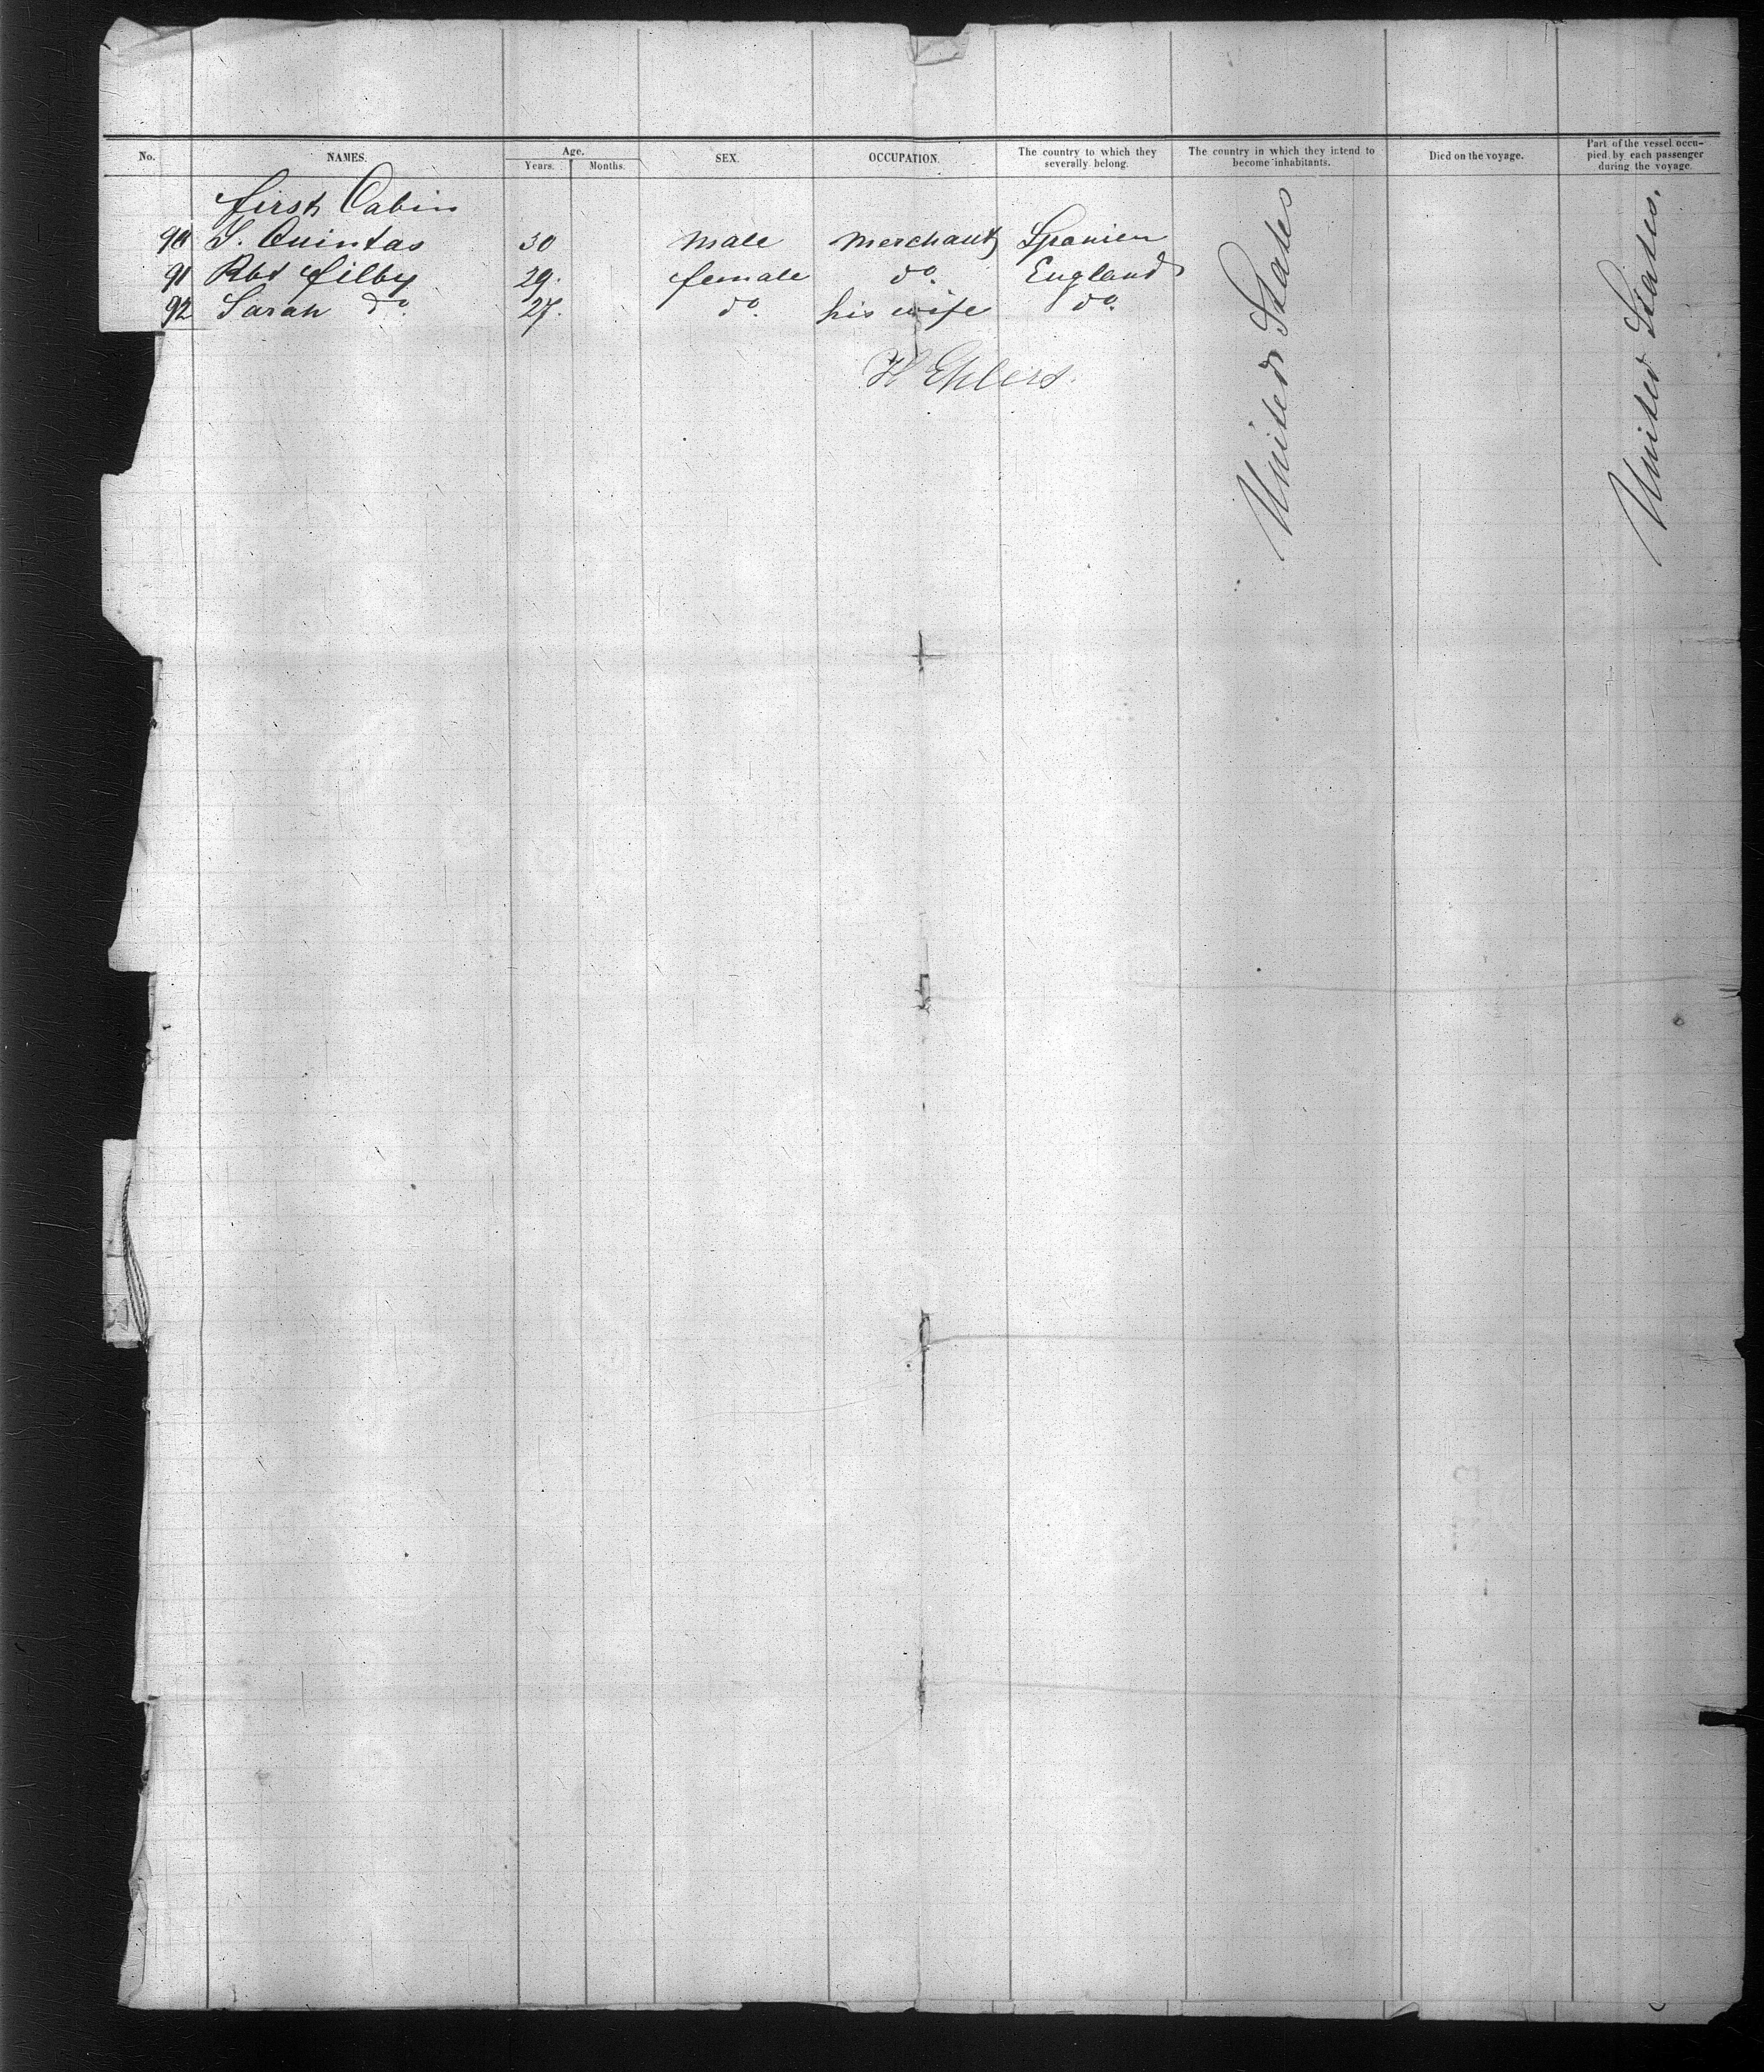 No. NAMES. Age. Years. Months. SEX. OCCUPATION. The country to which they severally belong. The country in which they intend to become inhabitants. Died on the voyage. Part of the vessel occupied by each passenger during the voyage.
first Cabin
90 S. Quintas 30 male merchant Spanien
91 Rbt filby 29. female do. England
92 Sarah do. 27. do. his wife do.
H Ehlers.
United States
United States.